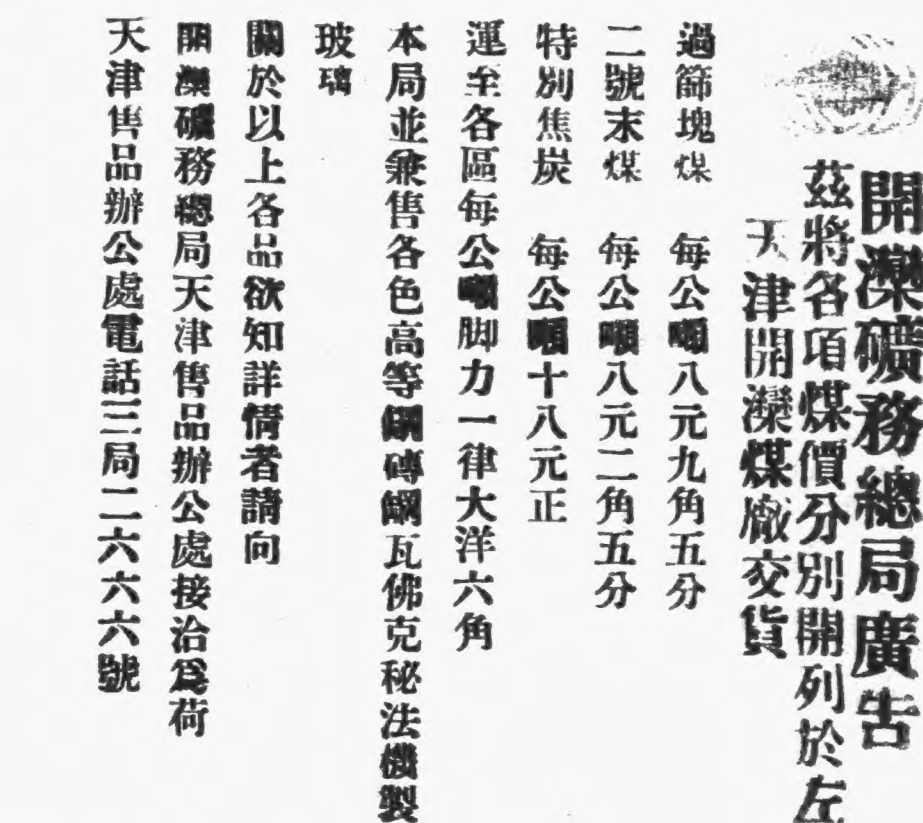 開灤礦務總局廣告
茲將各項煤價分別開列於左
天津開灤煤廠交貨
過篩塊煤 每公噸八元九角五分
二號末煤 每公噸八元二角五分
特別焦炭 每公噸十八元正
運至各區每公噸脚力一律大洋六角
本局並兼售各色高等鋼磚鋼瓦佛克秘法機製
玻璃
關於以上各品欲知詳情者請向
開灤礦務總局天津售品辦公處接洽爲荷
天津售品辦公處電話三局二六六六號